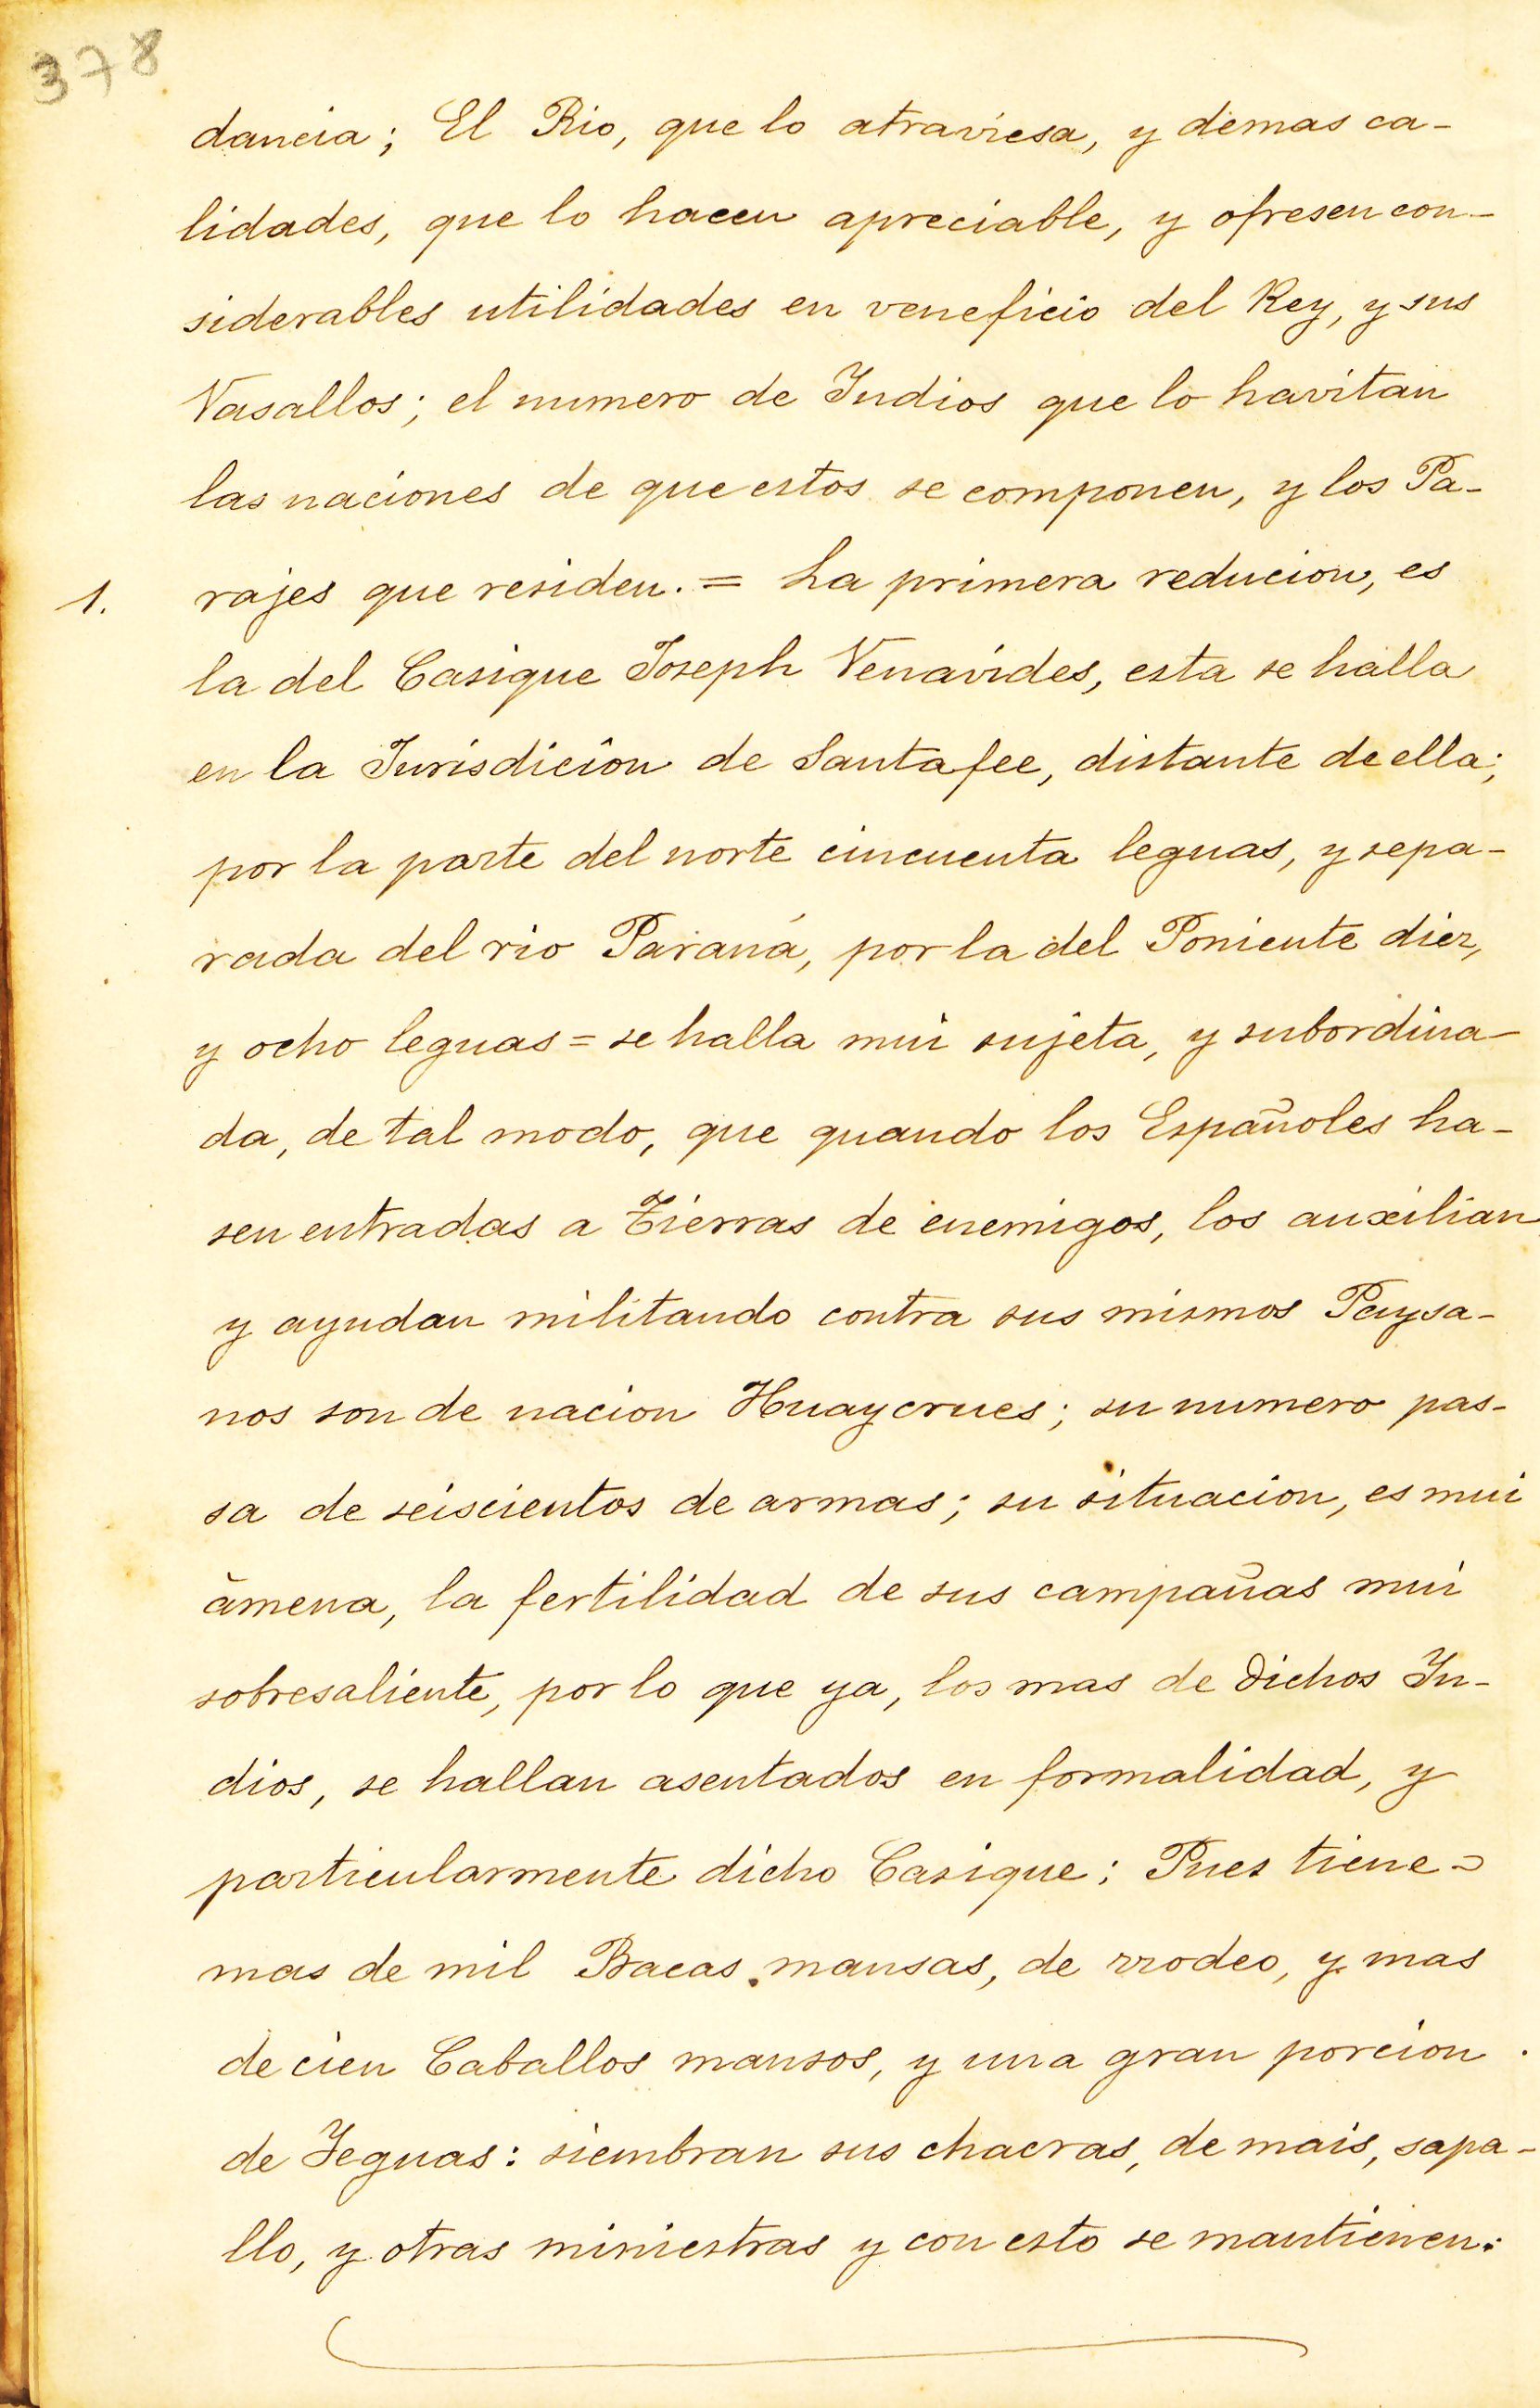 378
dancia; El Rio, que lo atraviesa, y demas ca-
lidades, que lo hacen apreciable, y ofresen con-
siderables utilidades en veneficio del Rey, y sus
Vasallos; el numero de Indios que lo havitan
las naciones de que estos se componen, y los Pa-
1. rajes que residen. = La primera reducion, es
la del Casique Joseph Venavides, esta se halla
en la Jurisdiciôn de Santafee, distante de ella;
por la parte del norte cincuenta leguas, y sepa-
rada del rio Paraná, por la del Poniente diez,
y ocho leguas = se halla mui sujeta, y subordina-
da, de tal modo, que quando los Españoles ha-
sen entradas a Tierras de enemigos, los auxilian
y ayudan militando contra sus mismos Paysa-
nos son de nacion Huaycrues; su numero pas-
sa de seiscientos de armas; su situacion, es mui
àmena, la fertilidad de sus campañas mui
sobresaliente, por lo que ya, los mas de dichos In-
dios, se hallan asentados en formalidad, y
particularmente dicho Casique; Pues tiene =
mas de mil Bacas mansas, de rrodeo, y mas
de cien Caballos mansos, y una gran porcion
de Jeguas: siembran sus chacras, de mais, sapa-
llo, y otras miniestras y con esto se mantienen: